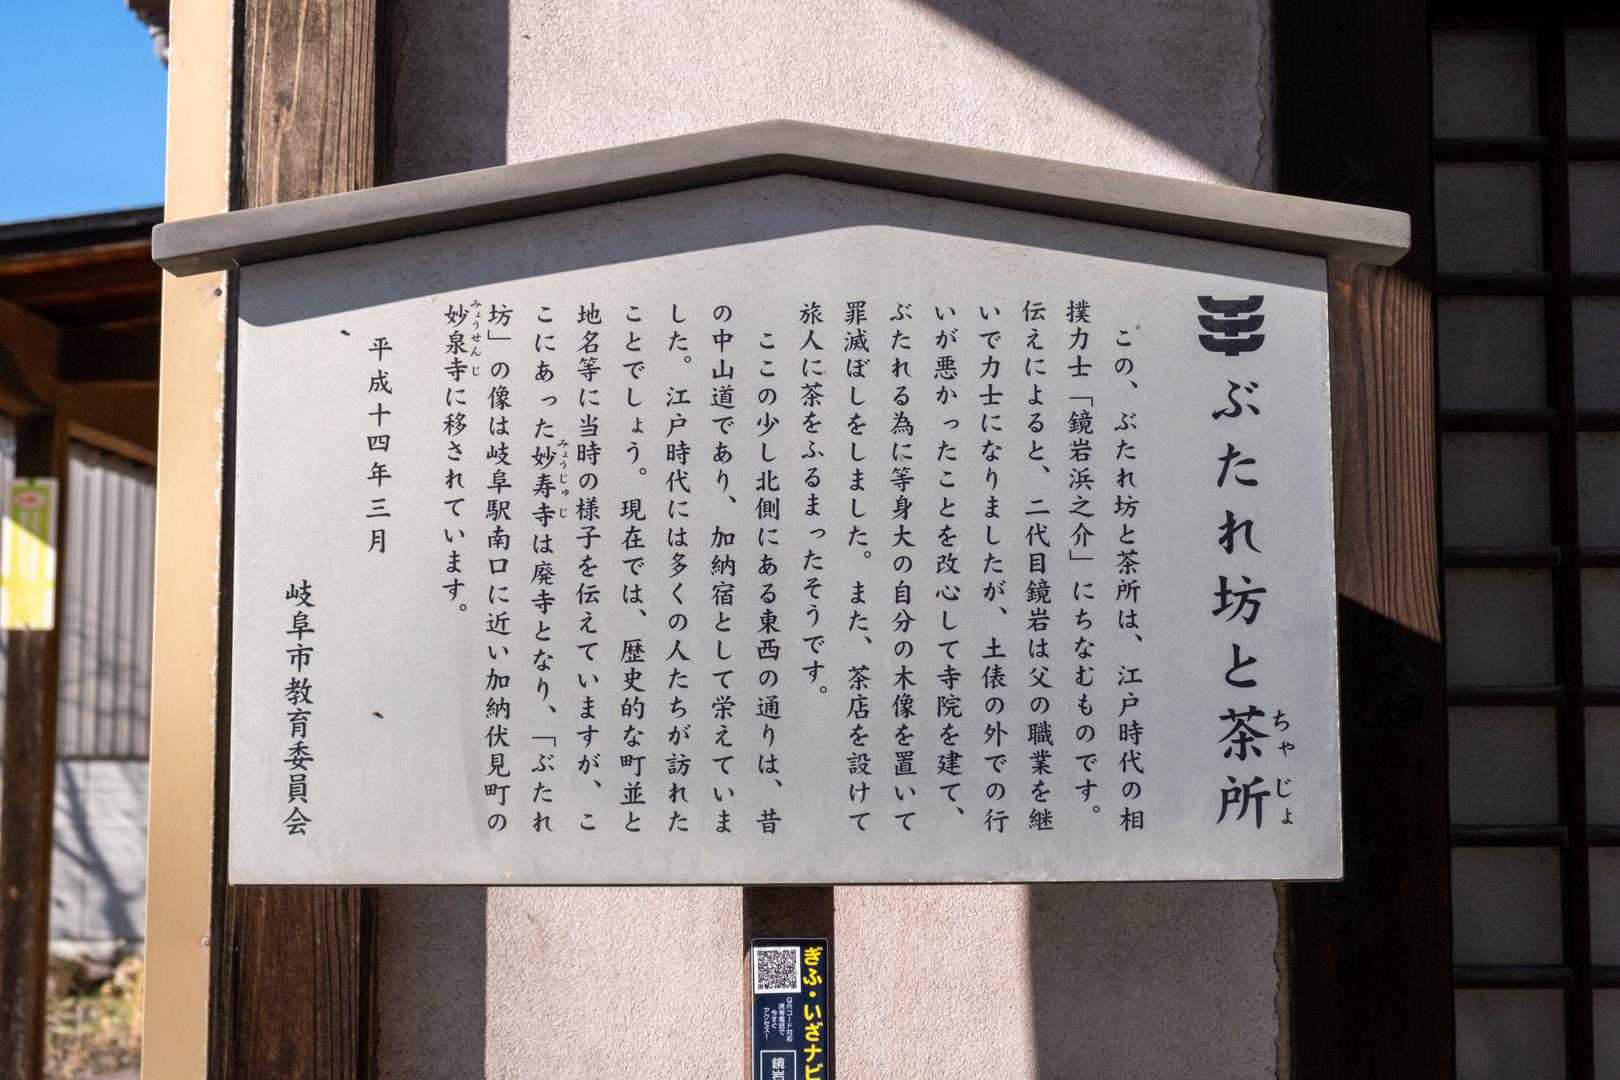 ぶたれ坊と茶所
ちゃじょ
この、ぶたれ坊と茶所は、江戸時代の相
撲力士「鏡岩浜之介」にちなむものです。
伝えによると、二代目鏡岩は父の職業を継
いで力士になりましたが、土俵の外での行
いが悪かったことを改心して寺院を建て、
ぶたれる為に等身大の自分の木像を置いて
罪滅ぼしをしました。また、茶店を設けて
旅人に茶をふるまったそうです。
ここの少し北側にある東西の通りは、昔
の中山道であり、加納宿として栄えていま
した。江戸時代には多くの人たちが訪れた
ことでしょう。現在では、歴史的な町並と
地名等に当時の様子を伝えていますが、こ
こにあった妙寿寺は廃寺となり、「ぶたれ
みょうじゅじ
坊」の像は岐阜駅南口に近い加納伏見町の
妙泉寺に移されています。
みょうせんじ
平成十四年三月
岐阜市教育委員会
ぎふ・いざナビ
QRコード対応
携帯電話で
今すぐ
アクセス!
鏡岩